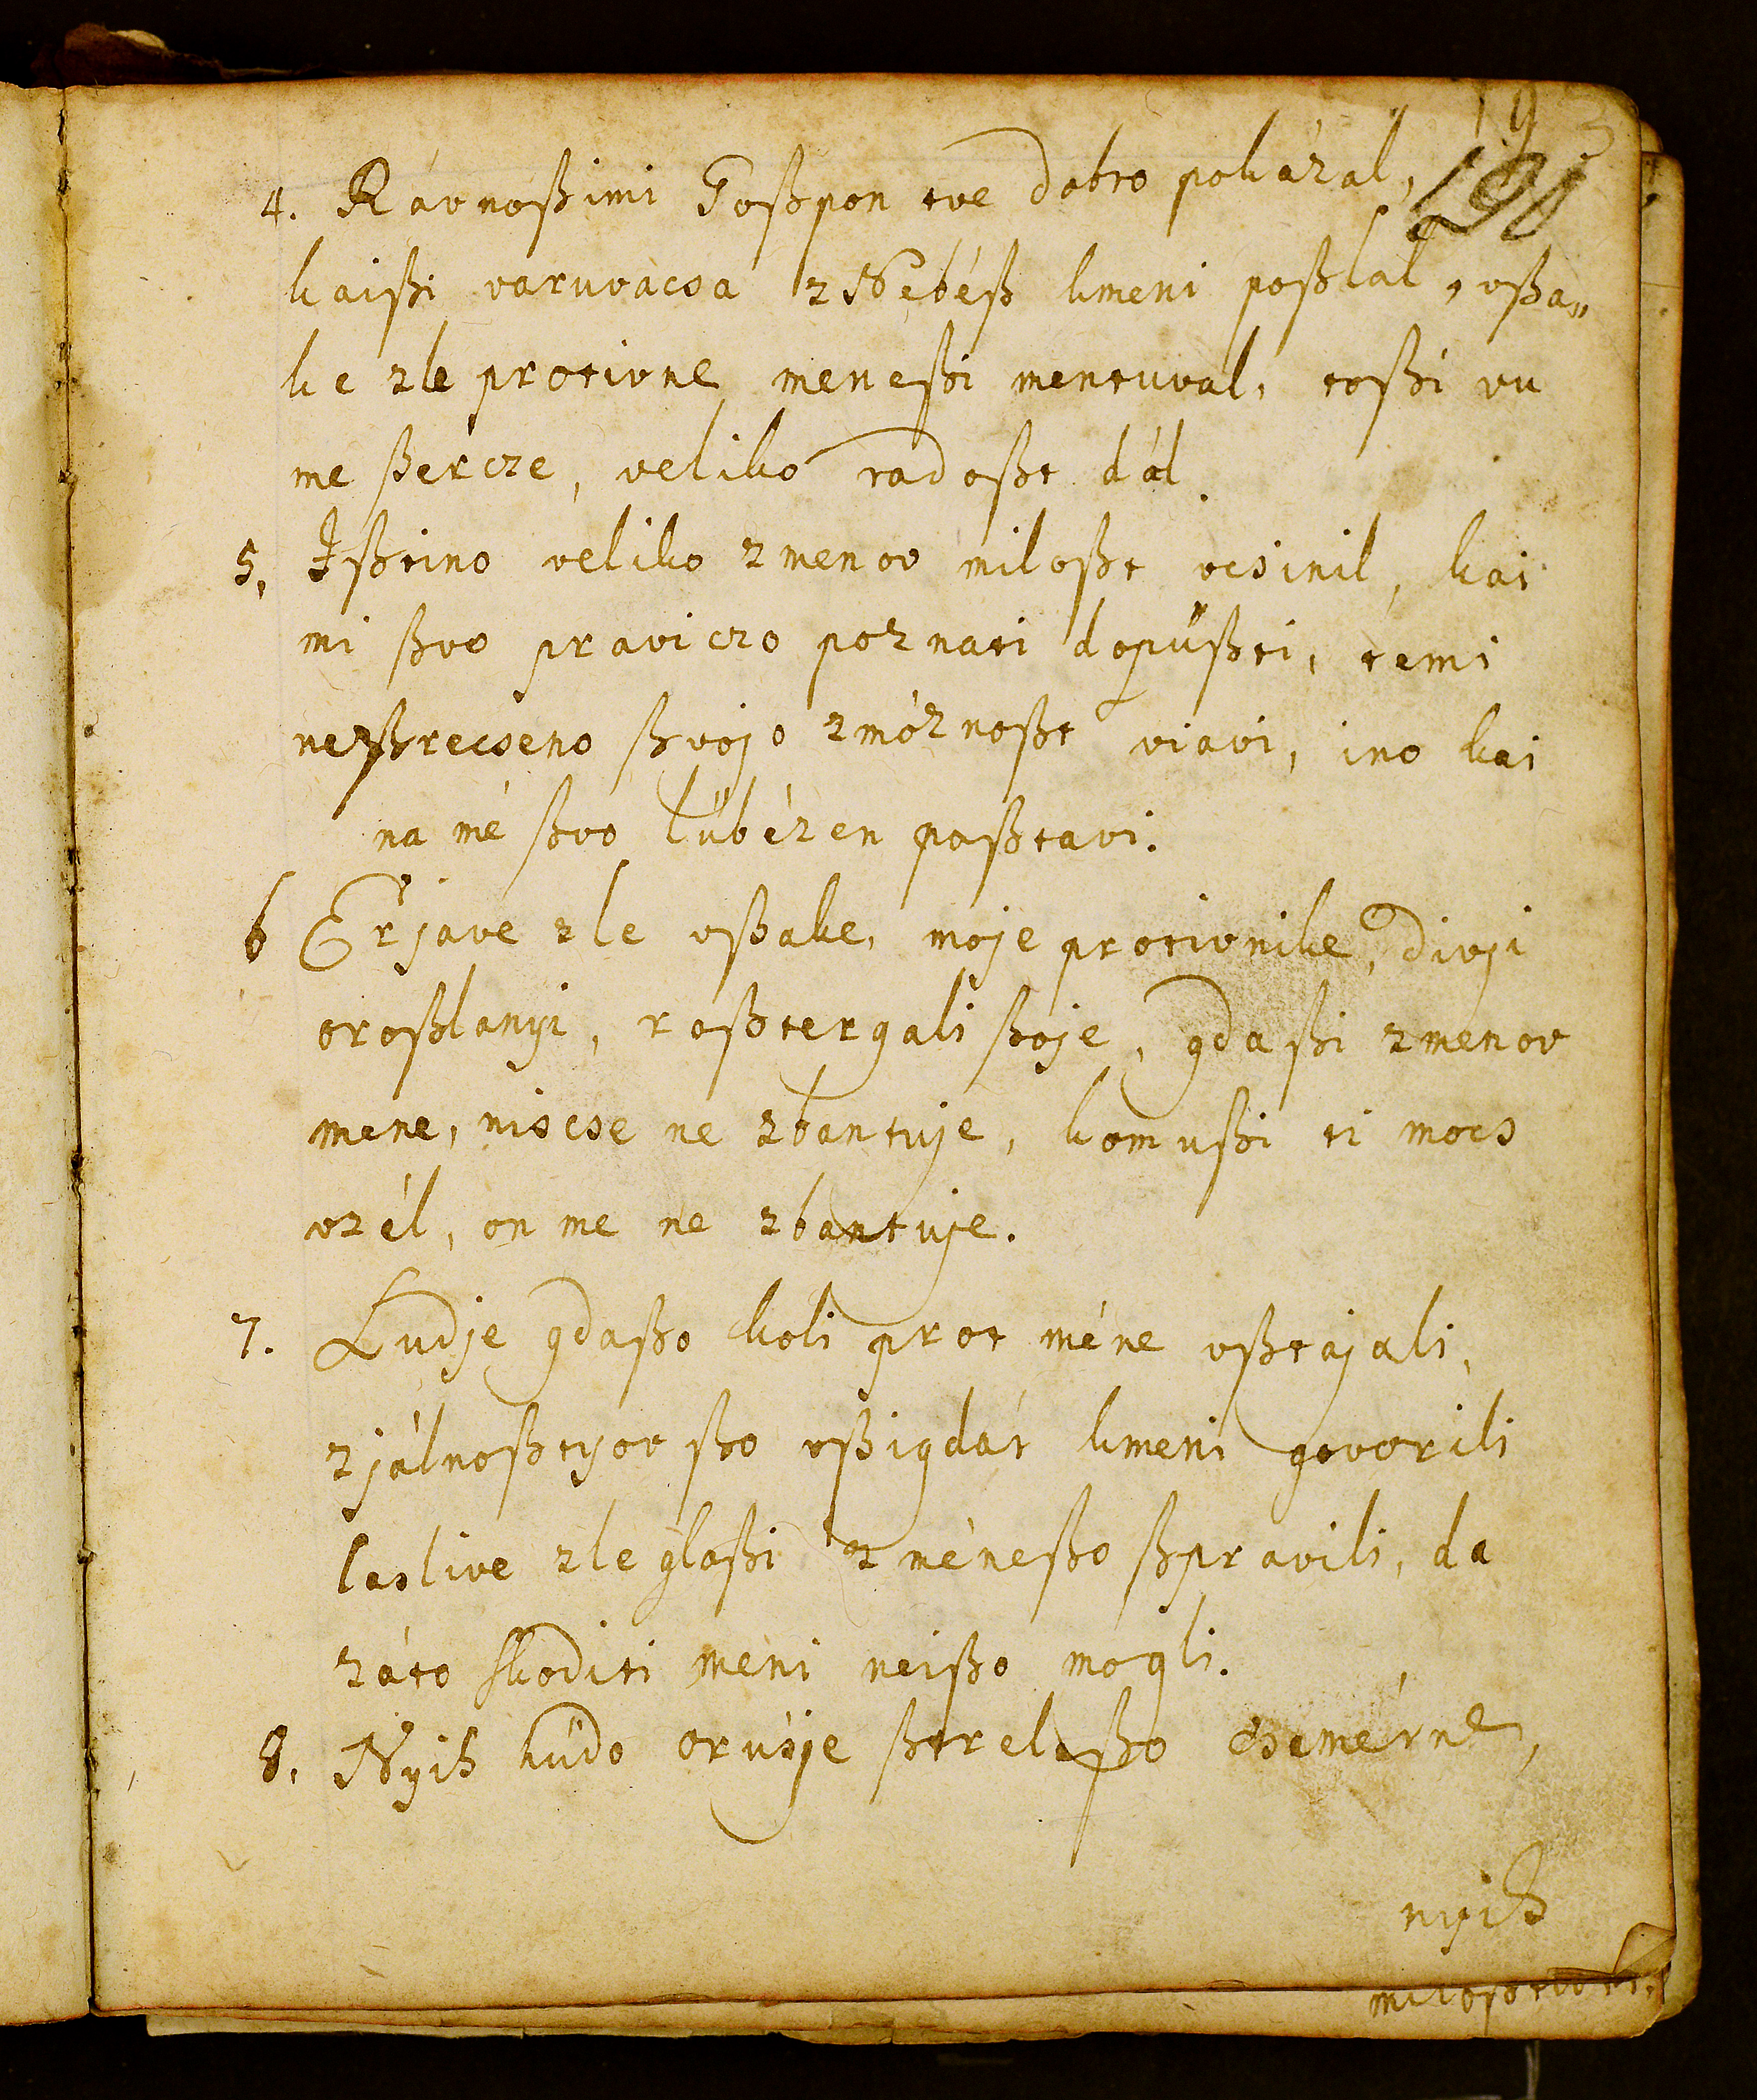 193
191
4. Rávnoßimi Goßpon tve dobro pokázal,
kaißi varuvacsa z Nebéß kmeni poßlal, vßa„
ke zle protivne meneßi mentuval, toßi vu
me ßercze, veliko radoßt dál.
5. Ißtino veliko zmenov miloßt vcsinil, kai
mi ßvo praviczo poznati dopüßti, temi
neßrecseno ßvojo zmóznoßt viavi, ino kai
na mé ßvo lübézen poßtavi.
6 Erjave zle vßake, moje protivnike, divji
oroßlanyi, roßtergali ßoje, gda ßi zmenov
mene, niscse ne zbantuje, komußi ti mocs
vzél, on me ne zbantuje.
7. Ludje gdaßo koli prot méne vßtajali,
zjálnoßtyov ßo vßigdár kmeni govorili
laslive zle glaßi z méneßo ßpravili, da
záto skoditi meni neißo mogli.
8. Nyih húdo orúsje ßtrelaßo csemérne,
nyih